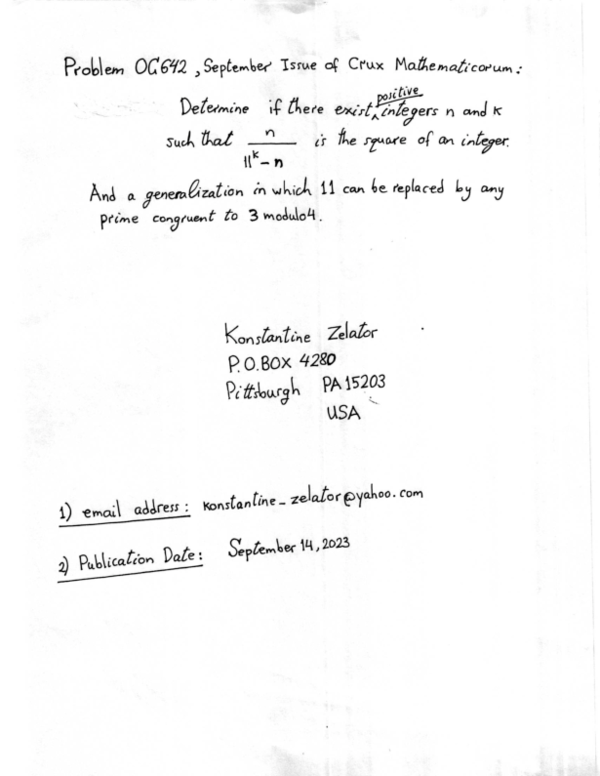 Problem OC642, September Issue of Crux Mathematicorum:
Determine if there exist positive integers n and k
such that n / 11^k - n is the square of an integer.
And a generalization in which 11 can be replaced by any
prime congruent to 3 modulo 4.
Konstantine Zelator
P.O.BOX 4280
Pittsburgh PA 15203
USA
1) email address: konstantine_zelator@yahoo.com
2) Publication Date: September 14, 2023